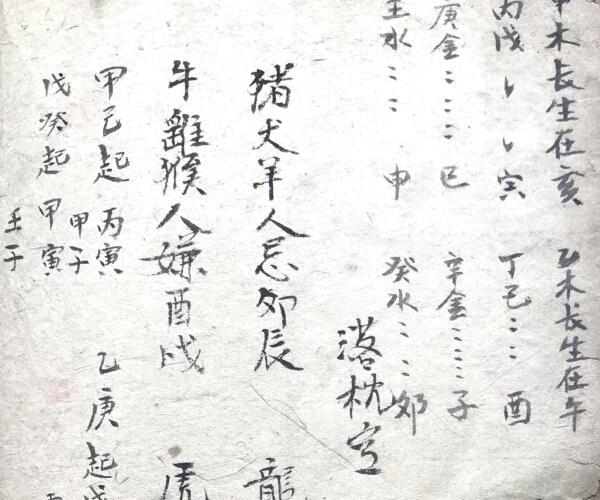 甲木长生在亥 乙木长生在午
丙戊〻〻寅 丁己〻〻酉
庚金〻〻〻巳 辛金〻〻〻子
壬水〻〻申 癸水〻〻卯
落枕空
猪犬羊人忌卯辰 龍
牛離猴人嫌酉戌 虎
甲己起丙寅 乙庚起戊
甲子
戊癸起甲寅
壬子